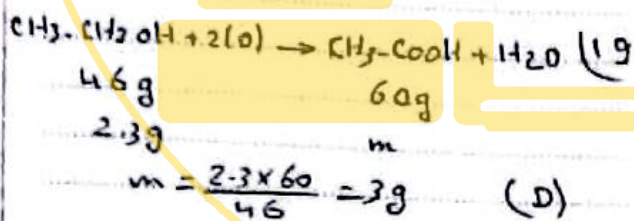 CH3-CH2OH + 2(O) → CH3-COOH + H2O (19
46g 60g
2.3g m
m = 2.3×60/46 = 3g (D)